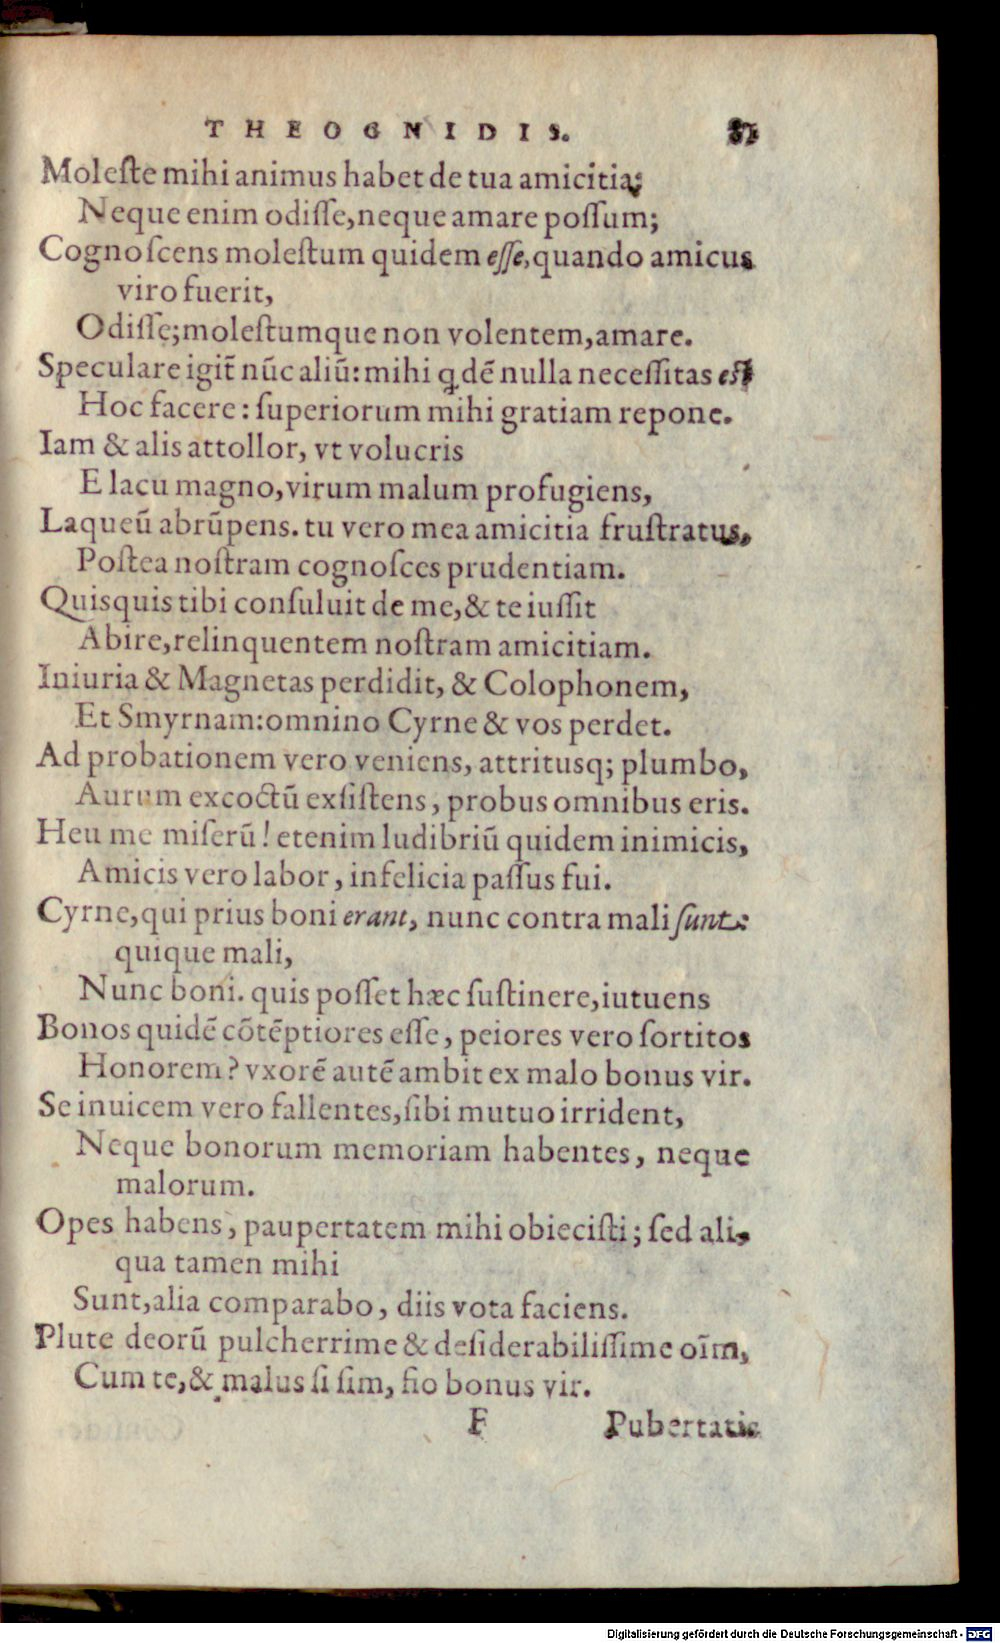 THEOGNIDIS. 81
Moleſte mihi animus habet de tua amicitia;
Neque enim odiſſe, neque amare poſſum;
Cognoſcens moleſtum quidem eſſe, quando amicus
viro fuerit,
Odiſſe; moleſtumque non volentem, amare.
Speculare igit̃ nūc aliū: mihi ꝗdē nulla neceſſitas eſt
Hoc facere: ſuperiorum mihi gratiam repone.
Iam & alis attollor, vt volucris
E lacu magno, virum malum profugiens,
Laqueū abrūpens. tu vero mea amicitia fruſtratus,
Poſtea noſtram cognoſces prudentiam.
Quisquis tibi conſuluit de me, & te iuſſit
Abire, relinquentem noſtram amicitiam.
Iniuria & Magnetas perdidit, & Colophonem,
Et Smyrnam: omnino Cyrne & vos perdet.
Ad probationem vero veniens, attritusq; plumbo,
Aurum excoctū exſiſtens, probus omnibus eris.
Heu me miſerū! etenim ludibriū quidem inimicis,
Amicis vero labor, infelicia paſſus fui.
Cyrne, qui prius boni erant, nunc contra mali ſunt:
quique mali,
Nunc boni. quis poſſet hæc ſuſtinere, iutuens
Bonos quidē cōtēptiores eſſe, peiores vero ſortitos
Honorem? vxorē autē ambit ex malo bonus vir.
Se inuicem vero fallentes, ſibi mutuo irrident,
Neque bonorum memoriam habentes, neque
malorum.
Opes habens, paupertatem mihi obieciſti; ſed ali-
qua tamen mihi
Sunt, alia comparabo, diis vota faciens.
Plute deorū pulcherrime & deſiderabiliſſime oīm,
Cum te, & malus ſi ſim, fio bonus vir.
F Pubertatis
Digitalisierung gefördert durch die Deutsche Forschungsgemeinschaft - DFG